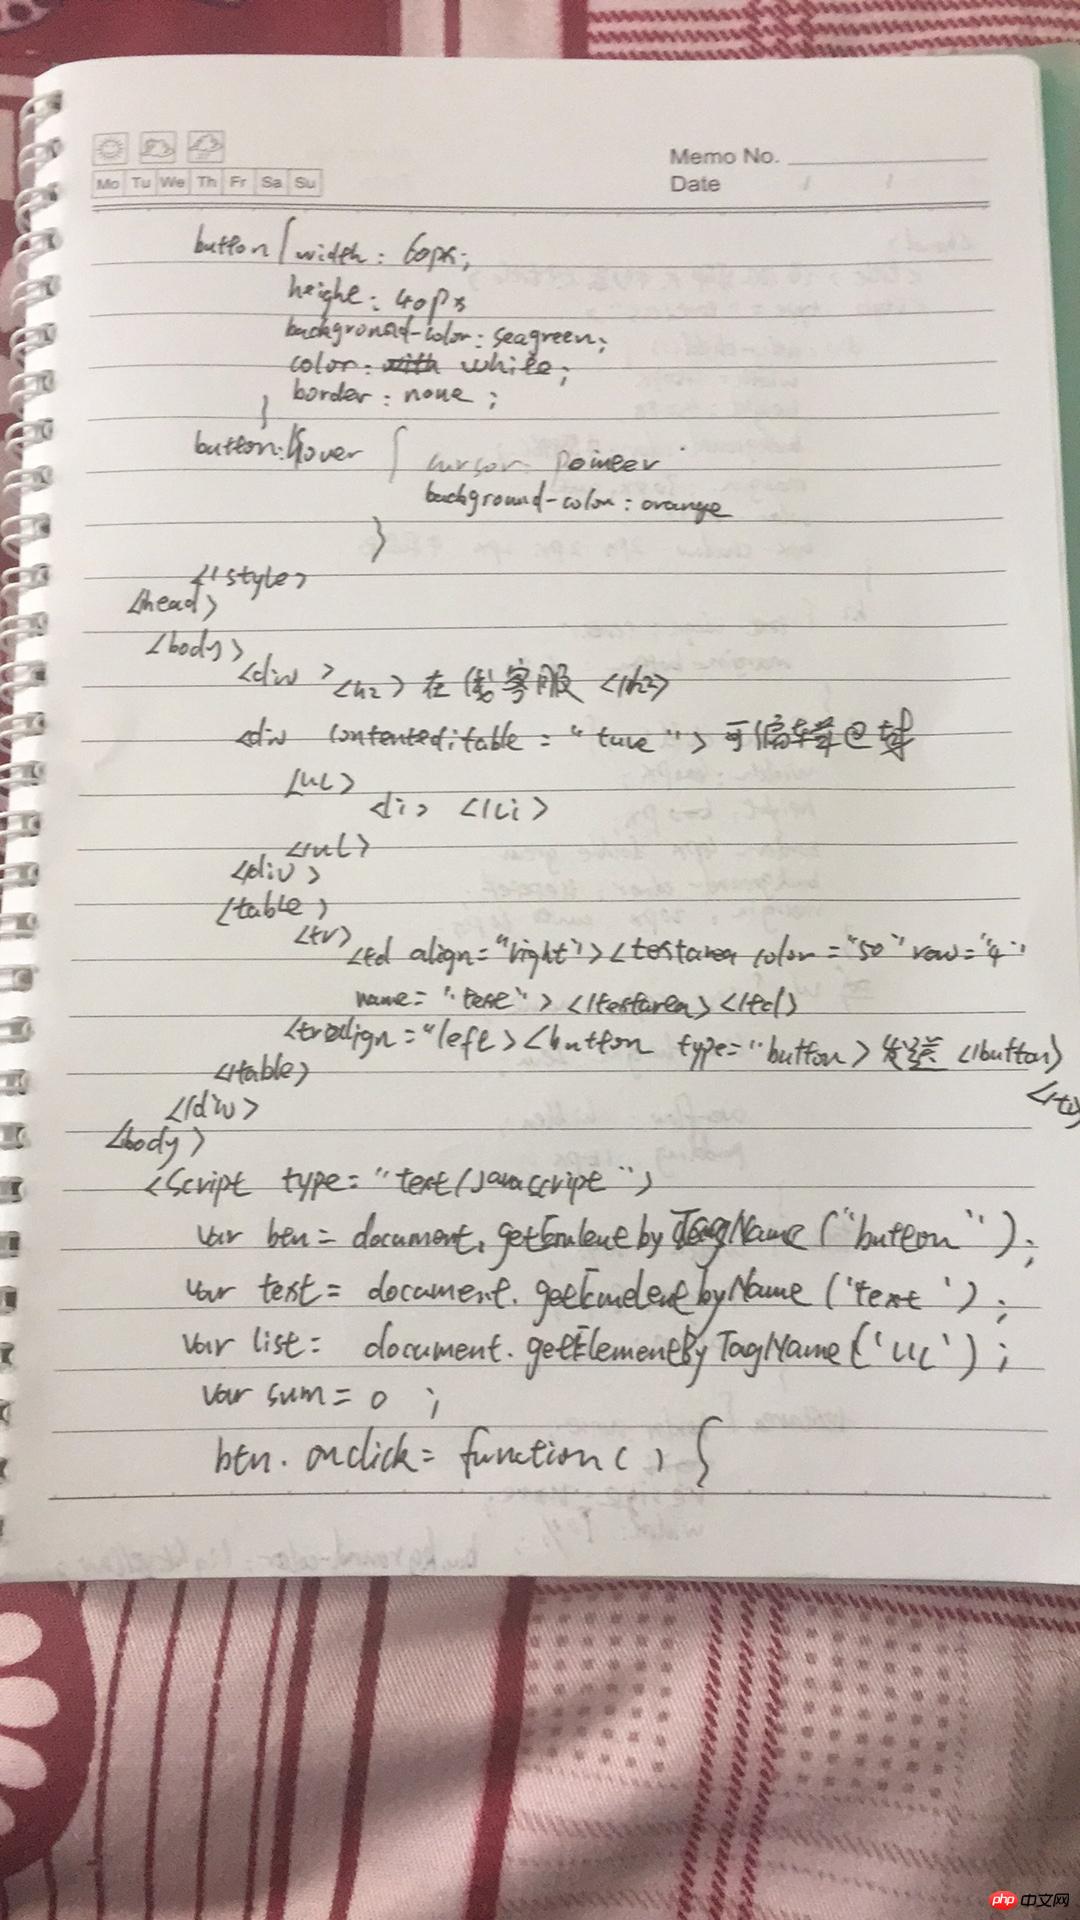 Mo Tu We Th Fr Sa Su
Memo No.
Date / /
button { width : 60px;
height : 40px
background-color : seagreen;
color : white;
border : none ;
}
button:hover {
cursor: poineer
background-color : orange
}
</style>
</head>
<body>
<div> <h2> 在线客服 </h2>
<div contenteditable = "ture"> 可编辑区域
<ul>
<li> </li>
</ul>
</div>
<table>
<tr>
<td align="right"><testarea color="50" row="4"
name="text"></testarea></td>
<tr align="left><button type="button> 发送 </button>
</table>
</div>
</body>
<script type="text/javascript">
var btn = document. getEmlent by TagName ("button");
var text = document. getEmelent byName ('text');
var list = document. getElementBy TagName ('ul');
var sum = 0 ;
btn. onclick = function() {
php 中文网